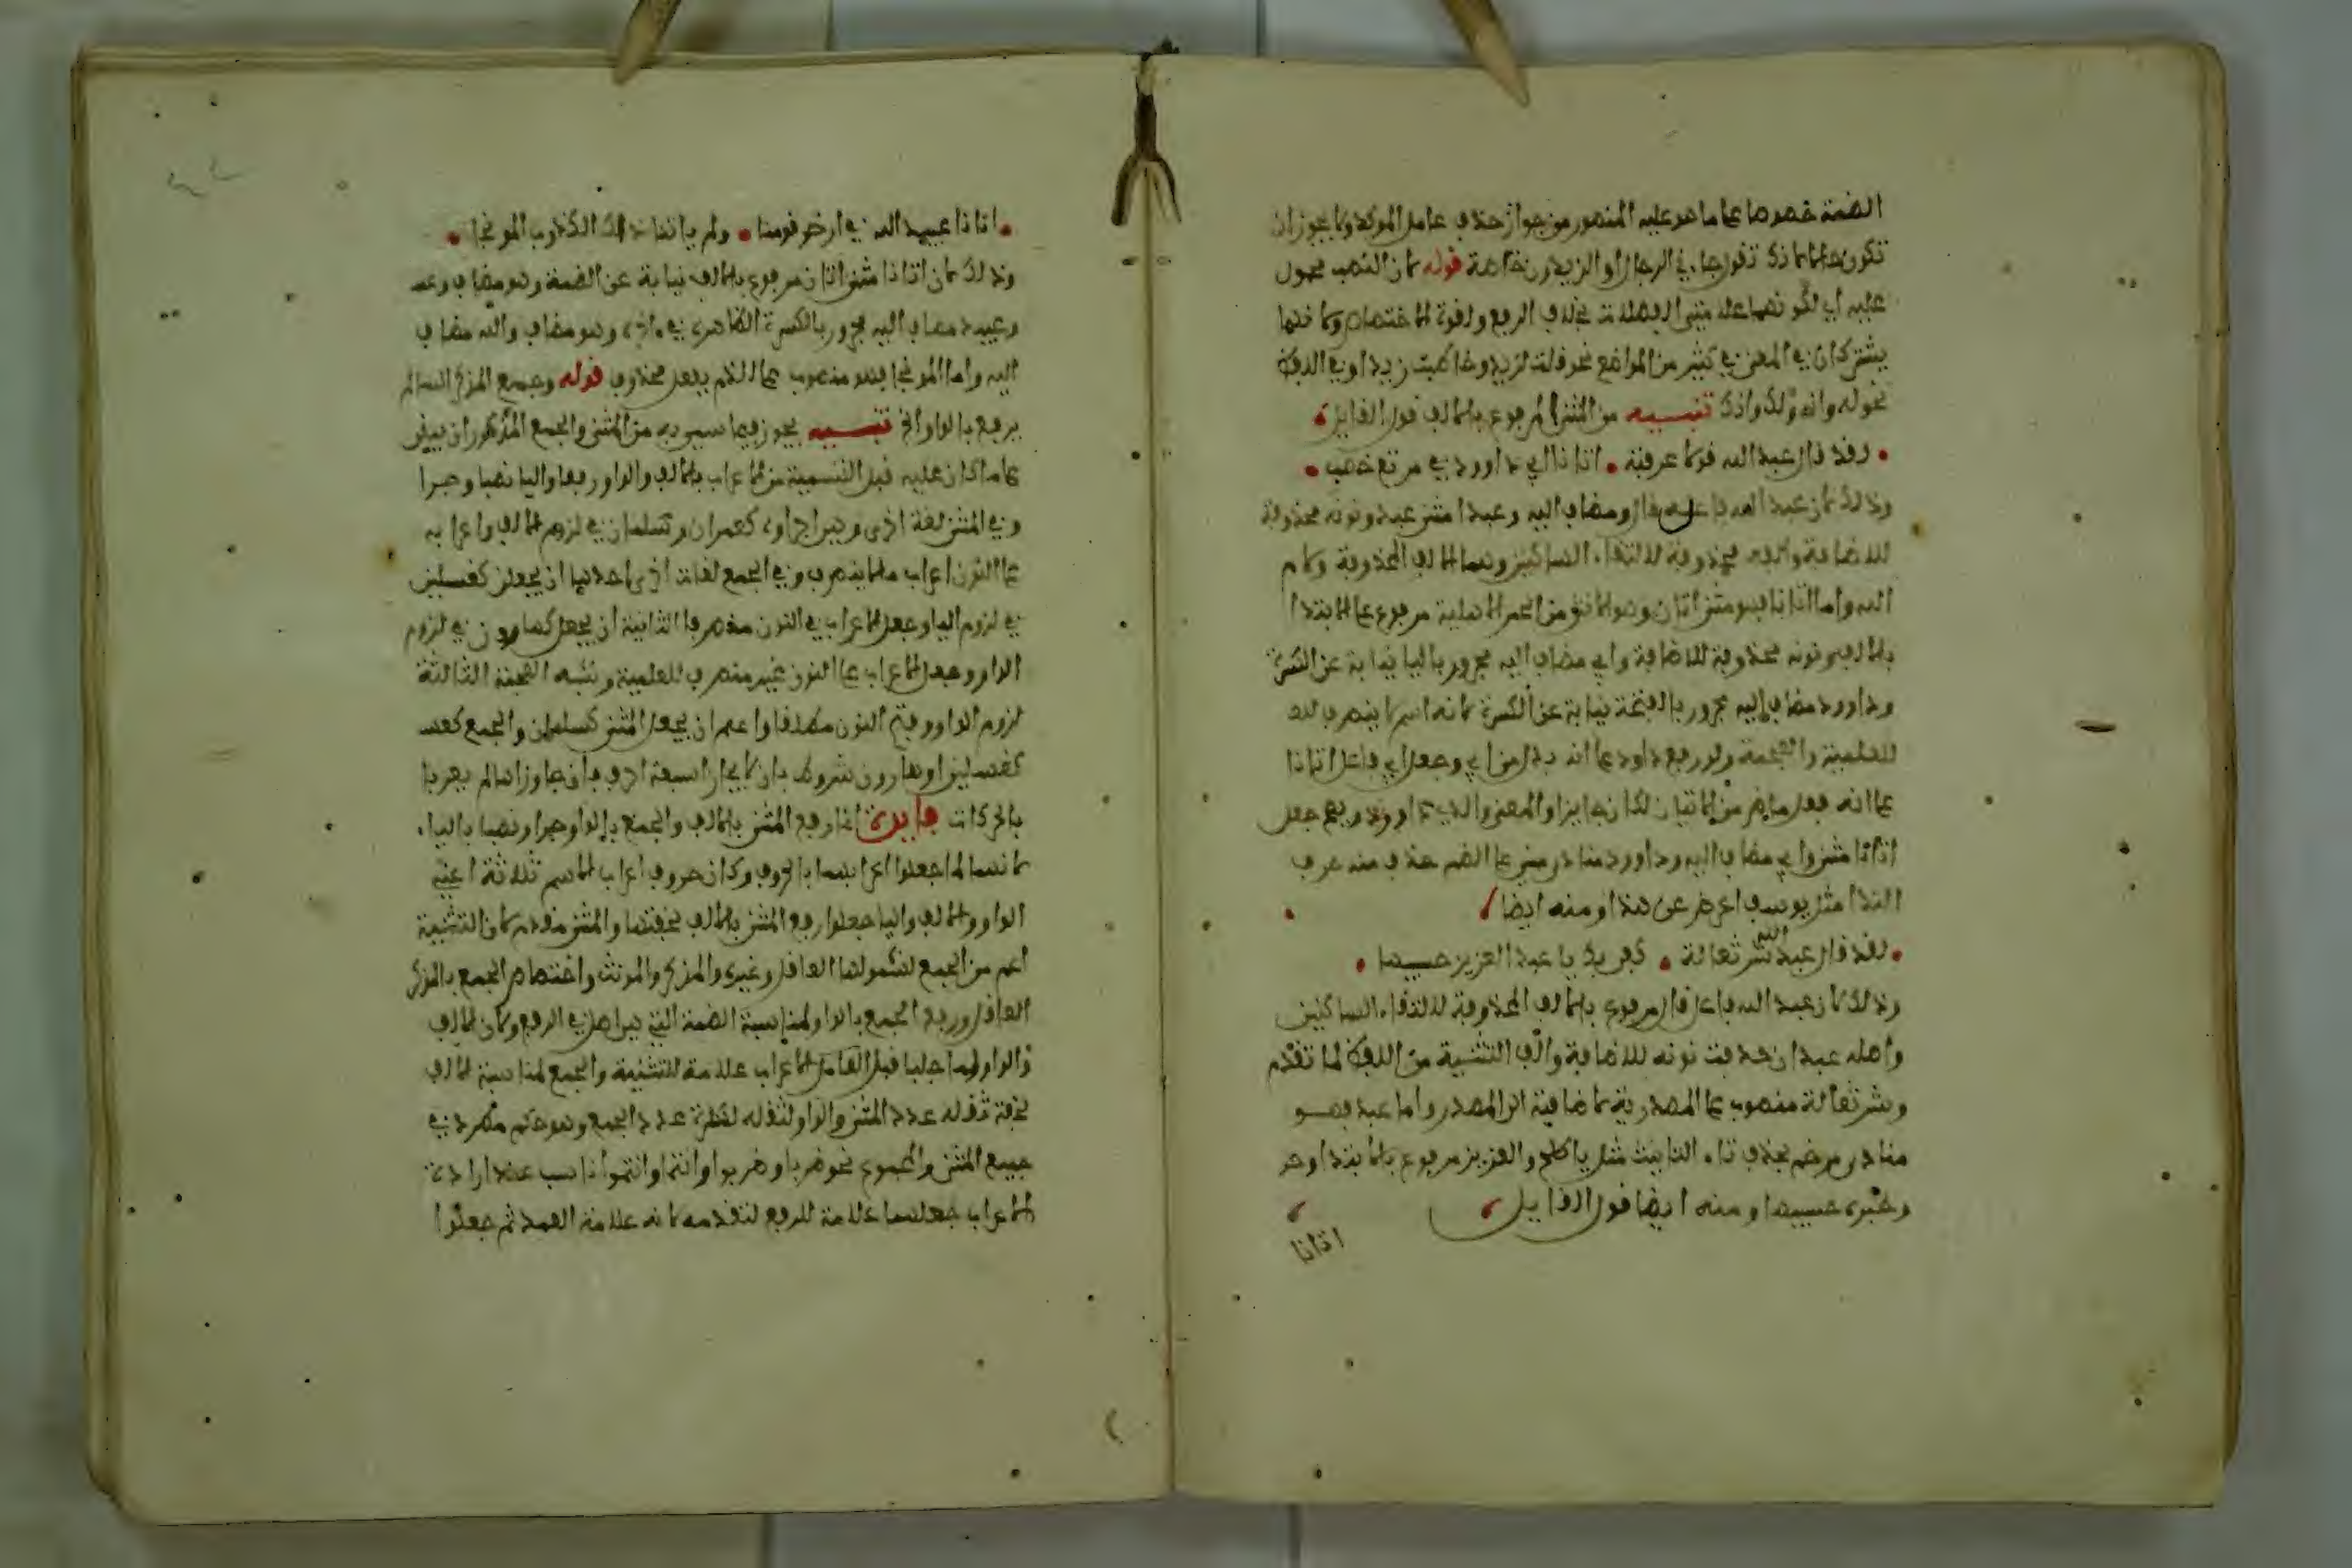 الضمة خصوصا على ما هو عليه الجمهور من جواز حذف عامل المؤكد ولا يجوز ان
تكون حالا ما ذكر تقول جاءني الرجال او الزيدون خاصة قوله لان النصب محمول
عليه اي لكونهما علامتي الفضلات بخلاف الرفع ولقوة الاختصاص ولانهما
يشتركان في المعنى في كثير من المواضع نحو قلت لزيد وخاطبت زيدا وفي اللفظ
نحو له وانه ولك واذك تنبيه من المثنى المرفوع بالالف قول القايل
لقد قال عبد الله قولا عرفته اتانا ابي داوود في مرتع خصب
وذلك لان عبد الله فاعل بقال ومضاف اليه وعبدا مثنى عبد ونونه محذوفة
للاضافة والفه محذوفة لالتقاء الساكنين وهما الالف المحذوفة ولام
الله واما اتانا فهو مثنى اتان وهو الانثى من الحمر الاهلية مرفوع على الابتدا
بالالف ونونه محذوفة للاضافة وابي مضاف اليه مجرور باليا نيابة عن الكسرة
وداوود مضاف اليه مجرور بالفتحة نيابة عن الكسرة لانه اسم لا ينصرف
للعلمية والعجمة ولو رفع داود على انه بدل من ابي وجعل ابي فاعل اتانا
على انه فعل ماض من الاتيان لكان جايزا والمعنى والدي داوود ويصح جعل
اتانا مثنى وابي مضاف اليه وداوود منادى مبني على الضم حذف منه حرف
الندا مثل يوسف اعرض عن هذا ومنه ايضا
لقد قال عبد الله شر ثعالة كفى بك يا عبد العزيز حسيبها
وذلك لان عبد الله فاعل قال مرفوع بالالف المحذوفة لالتقاء الساكنين
واصله عبدان حذفت نونه للاضافة والف التثنية من اللفظ لما تقدم
وشر ثعالة منصوب على المصدرية لاضافته الى المصدر واما عبد فهو
منادى مرخم بحذف تاء التانيث مثل يا طلح والعزيز مرفوع بالابتدا وحذ
وخبره حسيبها ومنه ايضا قول القايل
اتانا
اتانا عبيد الله في ارض قومنا ولم ياتنا ذلك الكذوب الموخجا
وذلك لان اتانا مثنى اتان مرفوع بالالف نيابة عن الضمة وهو مضاف وعبـ
وعبيد مضاف اليه مجرور بالكسرة الظاهرة في اخره وهو مضاف والله مضاف
اليه واما الموخجا فهو منصوب على الذم بفعل محذوف قوله وجمع المذكر السالم
يرفع بالواو الخ تنبيه يجوز فيما سمي به من المثنى والجمع المذكور ان يبقى
على ما كان عليه قبل التسمية من الاعراب بالالف والواو رفعا واليا نصبا وجرا
وفي المثنى لغة اخرى وهي اجراوه كعمران وسلمان في لزوم الالف واعرابه
على النون اعراب ما لا ينصرف وفي الجمع لغات اخرى احداها ان يجعل كغسلين
في لزوم اليا وجعل الاعراب في النون منصرفا الثانية ان يجعل كهارون في لزوم
الواو وجعل الاعراب على النون غير منصرف للعلمية وشبه العجمة الثالثة
لزوم الواو وفتح النون مطلقا واعلم ان يجعل المثنى كسلمان والجمع كغسـ
كغسلين او هارون شروط بان لا يجاوزا سبعة احرف فان جاوزاها لم يعربا
بالحركات فايدة انما رفع المثنى بالالف والجمع بالواو وجرا ونصبا بالياء
لانهما لما جعلوا اعرابهما بالحروف وكان حروف اعراب الاسم ثلاثة اعني
الواو والالف واليا جعلوا رفع المثنى بالالف لخفتها والمثنى مقدم لان التثنية
اعم من الجمع لشمولها العاقل وغيره والمذكر والمونث واختصاص الجمع بالمذكر
العاقل ورفع الجمع بالواو لمناسبة الضمة التي هي اصل في الرفع ولان الالف
والواو لما جلبا قبل العامل الاعراب علامة للتثنية والجمع لمناسبة الالف
لخفته لقلة عدد المثنى والواو لثقله لكثرة عدد الجمع وهو حكم مطرد في
جميع المثنى والمجموع نحو ضربا وضربوا وانتما وانتموا ناسب عند ارادة
الاعراب جعلهما علامة للرفع لتقدمه لانه علامة العمد ثم جعلوا